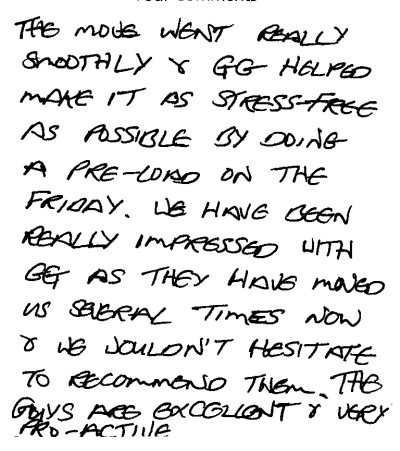 Your comments
THE MOVE WENT REALLY
SMOOTHLY & GG HELPED
MAKE IT AS STRESS-FREE
AS POSSIBLE BY DOING
A PRE-LOAD ON THE
FRIDAY. WE HAVE BEEN
REALLY IMPRESSED WITH
GG AS THEY HAVE MOVED
US SEVERAL TIMES NOW
& WE WOULDN'T HESITATE
TO RECOMMEND THEM. THE
GUYS ARE EXCELLENT & VERY
PRO-ACTIVE